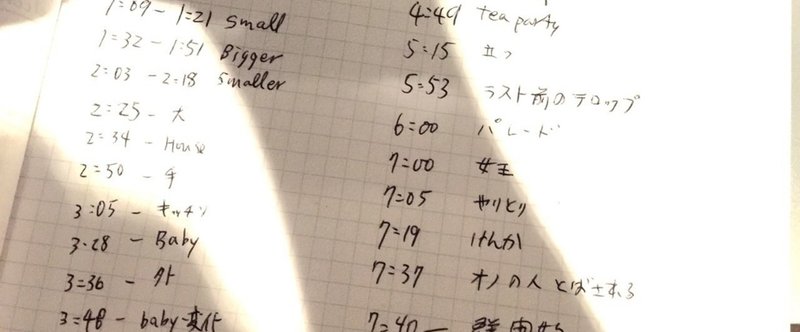 1:09 - 1:21 small
1:32 - 1:51 Bigger
2:03 - 2:18 Smaller
2:25 - 犬
2:34 - House
2:50 - 手
3:05 - キッチン
3:28 - Baby
3:36 - 外
3:48 - baby 変化
4:49 tea party
5:15 立つ
5:53 ラスト前のテロップ
6:00 パレード
7:00 女王
7:05 やりとり
7:19 けんか
7:37 オノの人とば
7:40 -